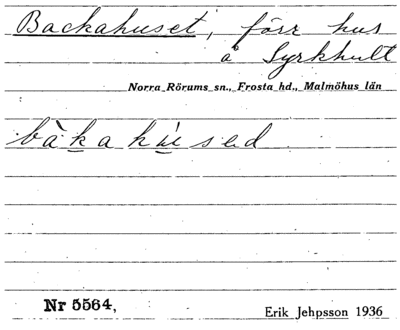 Backahuset, förr hus
å Syrkhult
Norra Rörums sn., Frosta hd., Malmöhus län
bàkahúsed
Nr 5564,
Erik Jehpsson 1936